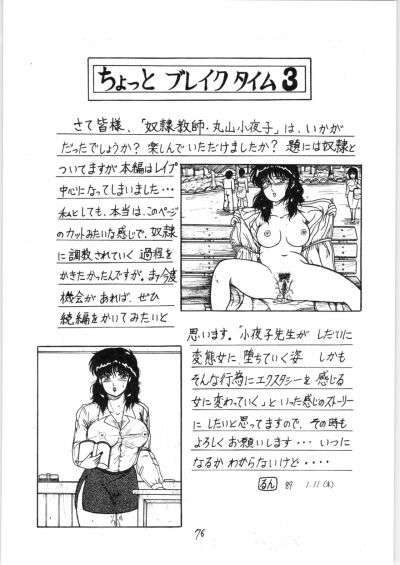 ちょっと ブレイクタイム3
さて皆様、「奴隷教師・丸山小夜子」は、いかが
だったでしょうか？ 楽しんでいただけましたか？ 題には奴隷と
ついてますが本編はレイプ
中心になってしまいました・・・
私としても、本当は、このページ
のカットみたいな感じで、奴隷
に調教されていく 過程を
かきたかったんですが。まァ今度
機会があれば、ぜひ
続編をかいてみたいと
思います。"小夜子先生が しだいに
変態女に 堕ちていく姿 しかも
そんな行為にエクスタシーを 感じる
女に変わっていく」といった感じのストーリー
にしたいと思ってますので、その時も
よろしく お願いします・・・ いつに
なるか わからないけど・・・・
るん 89 1.11(水)
76